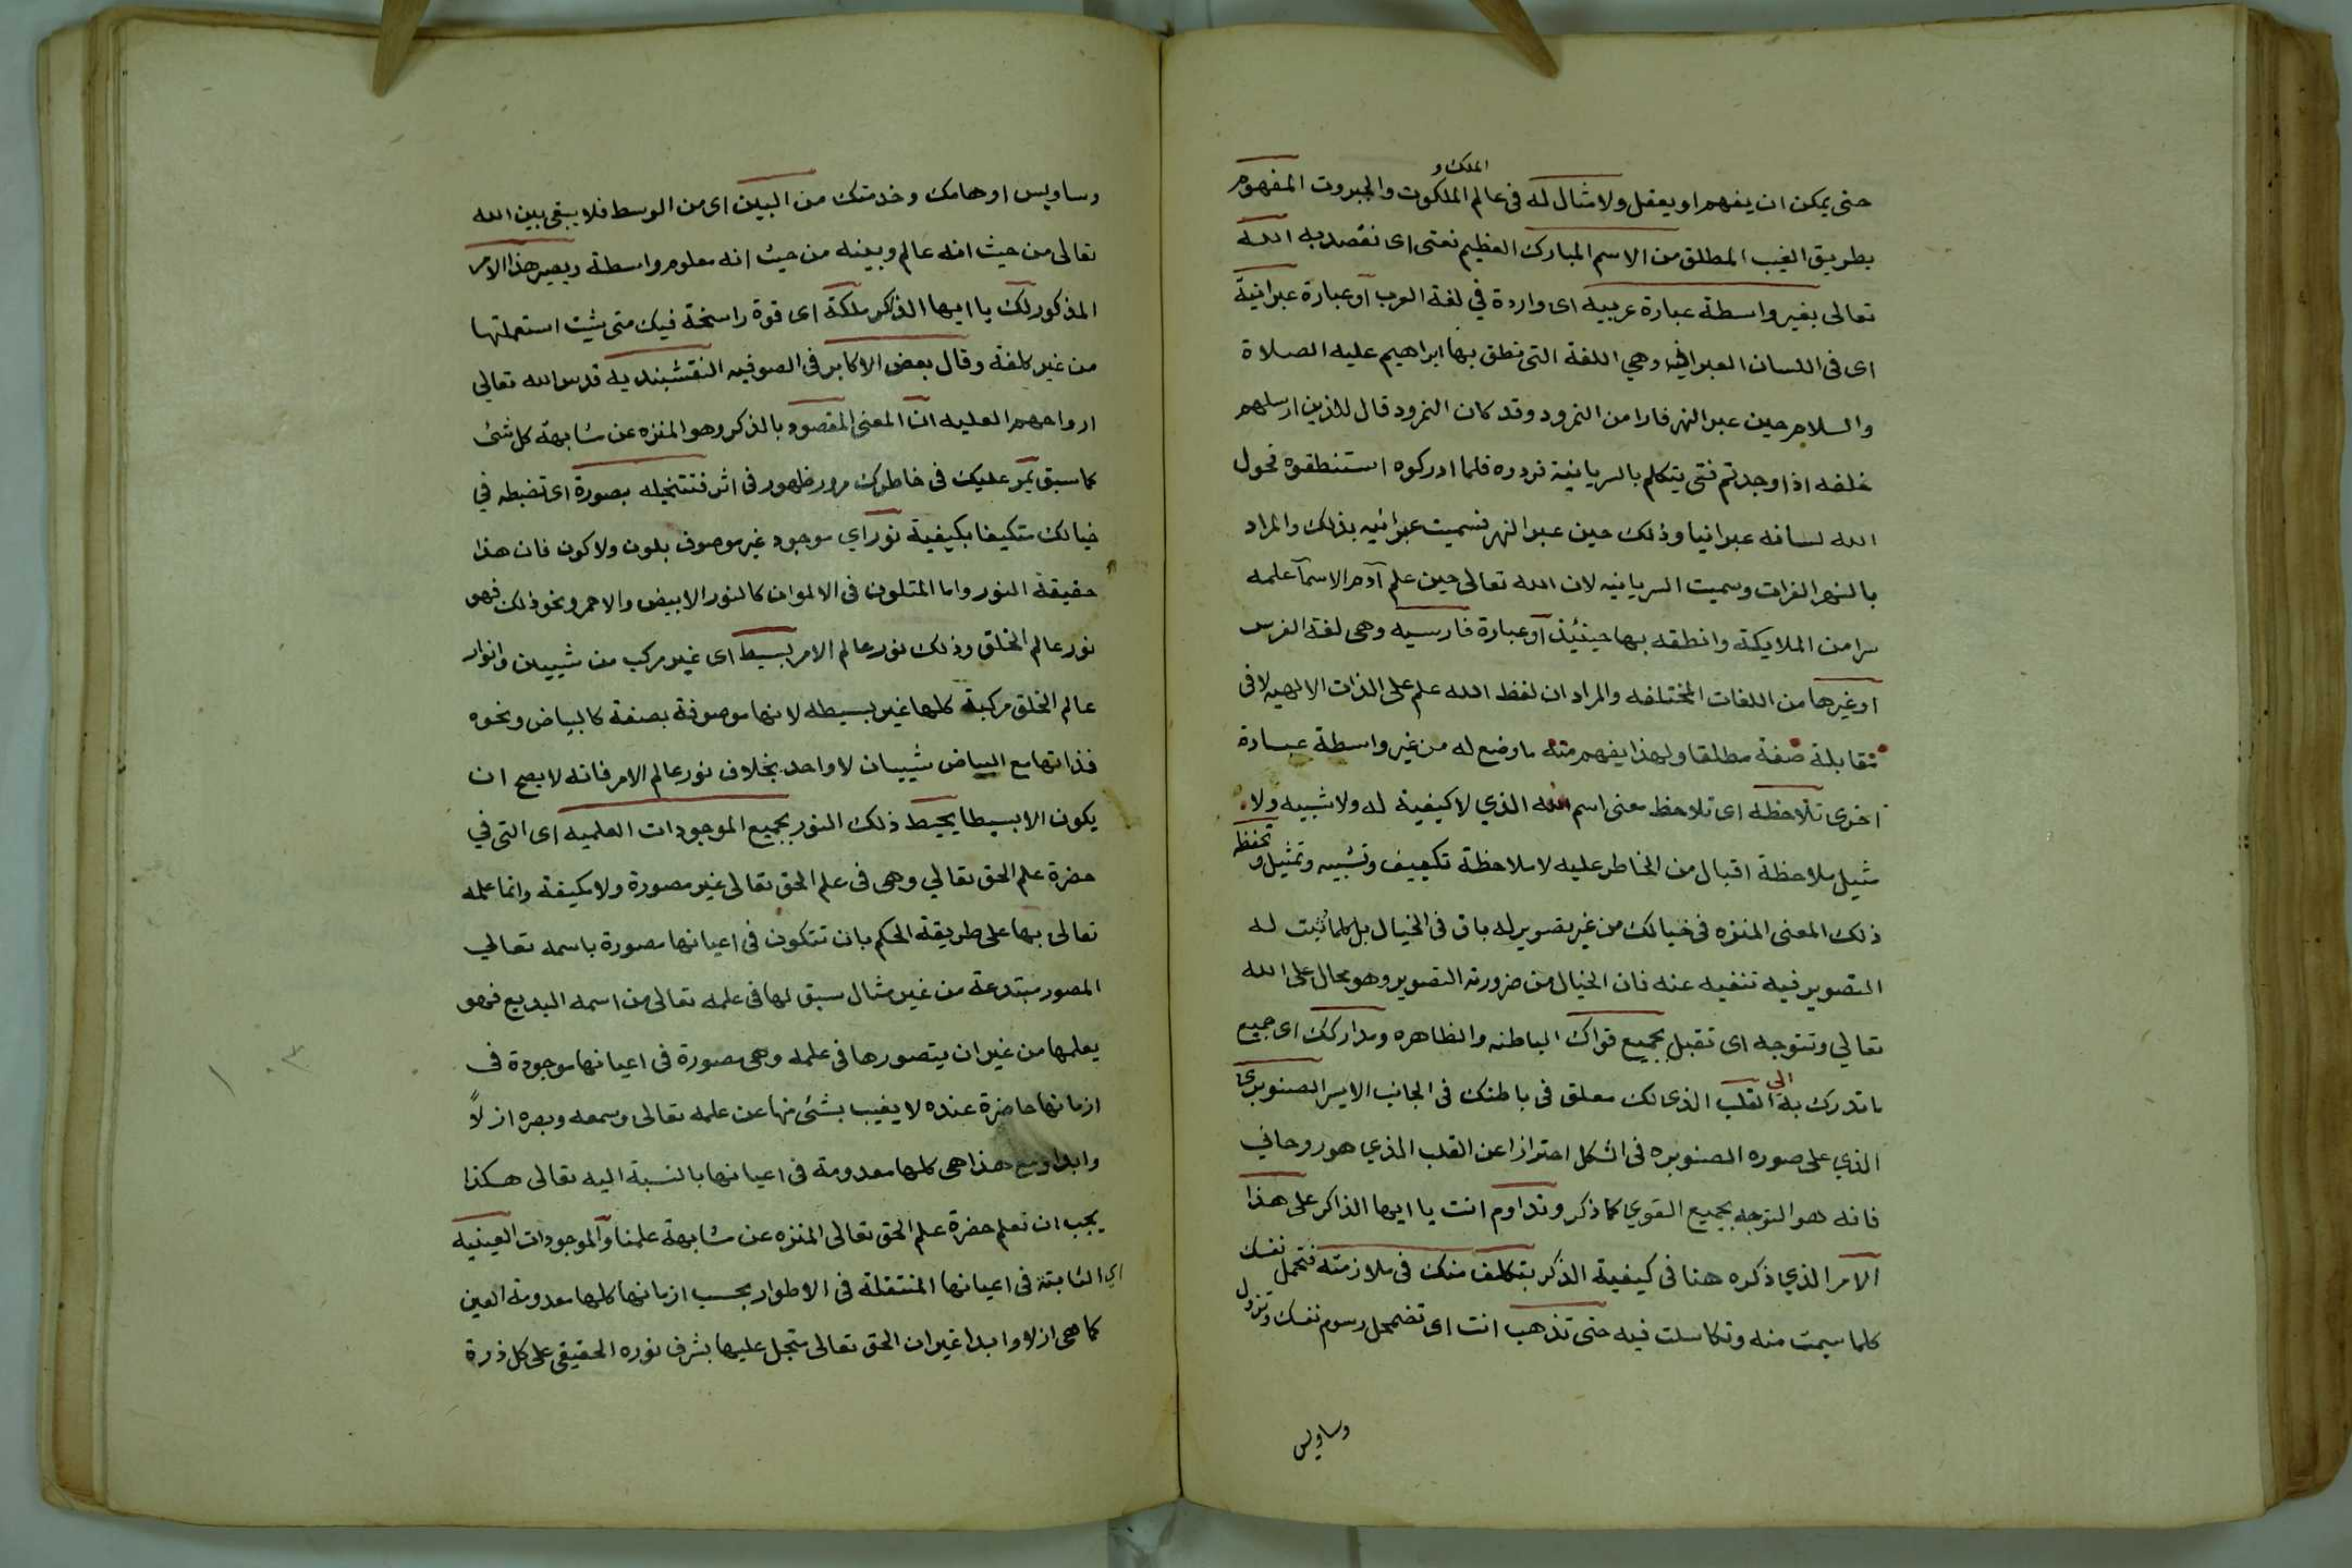 حتى يمكن ان يفهم او يعقل ولا مثال له فى عالم الملك و الملكوت والجبروت المفهوم
بطريق الغيب المطلق من الاسم المبارك العظيم نعنى اى نقصد به الله
تعالى بغير واسطة عبارة عربيه اى واردة في لغة العرب آو عبارة عبرانية
اى فى اللسان العبرانى وهي اللغة التى نطق بها ابراهيم عليه الصلاة
والسلام حين عبر النهر فارا من النمرود وقد كان النمرود قال للذين ارسلهم
خلفه اذا وجدتم فتى يتكلم بالسريانية فردوه فلما ادركوه استنطقوه فحول
الله لسانه عبرانيا وذلك حين عبر النهر فسميت عبرانيه بذلك والمراد
بالنهر الفرات وسميت السريانيه لان الله تعالى حين علم آدم الاسمآ علمه
سرا من الملايكة وانطقه بها حينئذ آو عبارة فارسيه وهى لغة الفرس
او غيرها من اللغات المختلفه والمراد ان لفظ الله علم على الذات الالهيه لا فى
مقابلة صفة مطلقا ولهذا يفهم منه ما وضع له من غير واسطة عبارة
اخرى تلاحظه اى تلاحظ معنى اسم الله الذي لا كيفية له ولا شبيه ولا
مثيل ملاحظة اقبال من الخاطر عليه لا ملاحظة تكييف وتشبيه وتمثيل وتحفظ
ذلك المعنى المنزه فى خيالك من غير تصوير له باق فى الخيال بل كلما ثبت له
التصوير فيه تنفيه عنه فان الخيال من ضرورته التصوير وهو محال على الله
تعالي وتتوجه اى تقبل بجميع قواك الباطنه والظاهره ومداركك اى جميع
ما تدرك به الى القلب الذى لك معلق فى باطنك فى الجانب الايسر الصنوبرى
الذي على صوره الصنوبره فى الشكل احترازا عن القلب الذي هو روحاني
فانه هو التوجه بجميع القوي كما ذكر وتداوم انت يا ايها الذاكر على هذا
الآمر الذي ذكره هنا فى كيفية الذكر بتكلف منك فى ملازمته فتحمل نفسك
كلما سيمت منه وتكاسلت فيه حتى تذهب انت اى تضمحل رسوم نفسك وتزول
وساويس
وساويس اوهامك وخدمتك من البين اى من الوسط فلا يبقى بين الله
تعالى من حيث انه عالم وبينه من حيث انه معلوم واسطة ويصير هذا الامر
المذكور لك يا ايها الذاكر ملكة اى قوة راسخة فيك متى شيت استعملتها
من غير كلفة وقال بعض الاكابر فى الصوفيه النقشبنديه قدس الله تعالي
ارواحهم العليه ان المعنى المقصود بالذكر وهو المنزه عن مشابهة كل شئ
كما سبق يمر عليك فى خاطرك مرور ظهور فى اثر فتتخيله بصورة اى تضبطه في
خيالك متكيفا بكيفية نور اي موجود غير موصوف بلون ولا كون فان هذا
حقيقة النور واما المتلون فى الالوان كالنور الابيض والاحمر ونحو ذلك فهو
نور عالم الخلق وذلك نور عالم الامر بسيط اى غير مركب من شييين وانوار
عالم الخلق مركبة كلها غير بسيطه لانها موصوفة بصفة كالبياض ونحوه
فذاتها مع البياض شييان لا واحد بخلاف نور عالم الامر فانه لا يصح ان
يكون الا بسيطا يحيط ذلك النور بجميع الموجودات العلميه اى التى في
حضرة علم الحق تعالي وهى فى علم الحق تعالى غير مصورة ولا مكيفة وانما علمه
تعالى بها على طريقة الحكم بان تتكون فى اعيانها مصورة باسمه تعالي
المصور مبتدعة من غير مثال سبق لها فى علمه تعالى من اسمه البديع فهو
يعلمها من غير ان يتصورها فى علمه وهى مصورة فى اعيانها موجودة فى
ازمانها حاضرة عنده لا يغيب بشئ منها عن علمه تعالى وسمعه وبصره ازلاً
وابدا ومع هذا هى كلها معدومة فى اعيانها بالنسبة اليه تعالى هكذا
يجب ان تعلم حضرة علم الحق تعالى المنزه عن مشابهة علمنا وآلموجودات العينيه
اي الثابتة فى اعيانها المنتقلة فى الاطوار بحسب ازمانها كلها معدومة العين
كما هى ازلا وابدا غير ان الحق تعالى متجل عليها بشرف نوره الحقيقي على كل ذرة